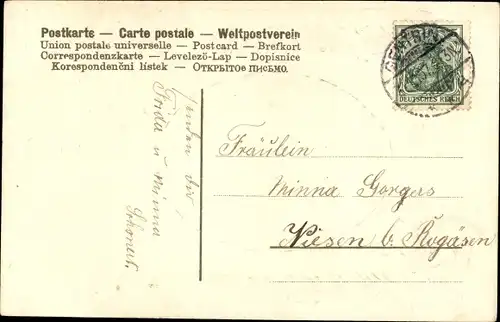 Postkarte — Carte postale — Weltpostverein
Union postale universelle — Postcard — Brefkort
Correspondenzkarte — Levelező-Lap — Dopisnice
Korespondenční lístek — Открытое письмо.
DEUTSCHES REICH
senden dir
Frida u Minna
Fräulein
Minna Gorgas
Viesen b. Rogäsen